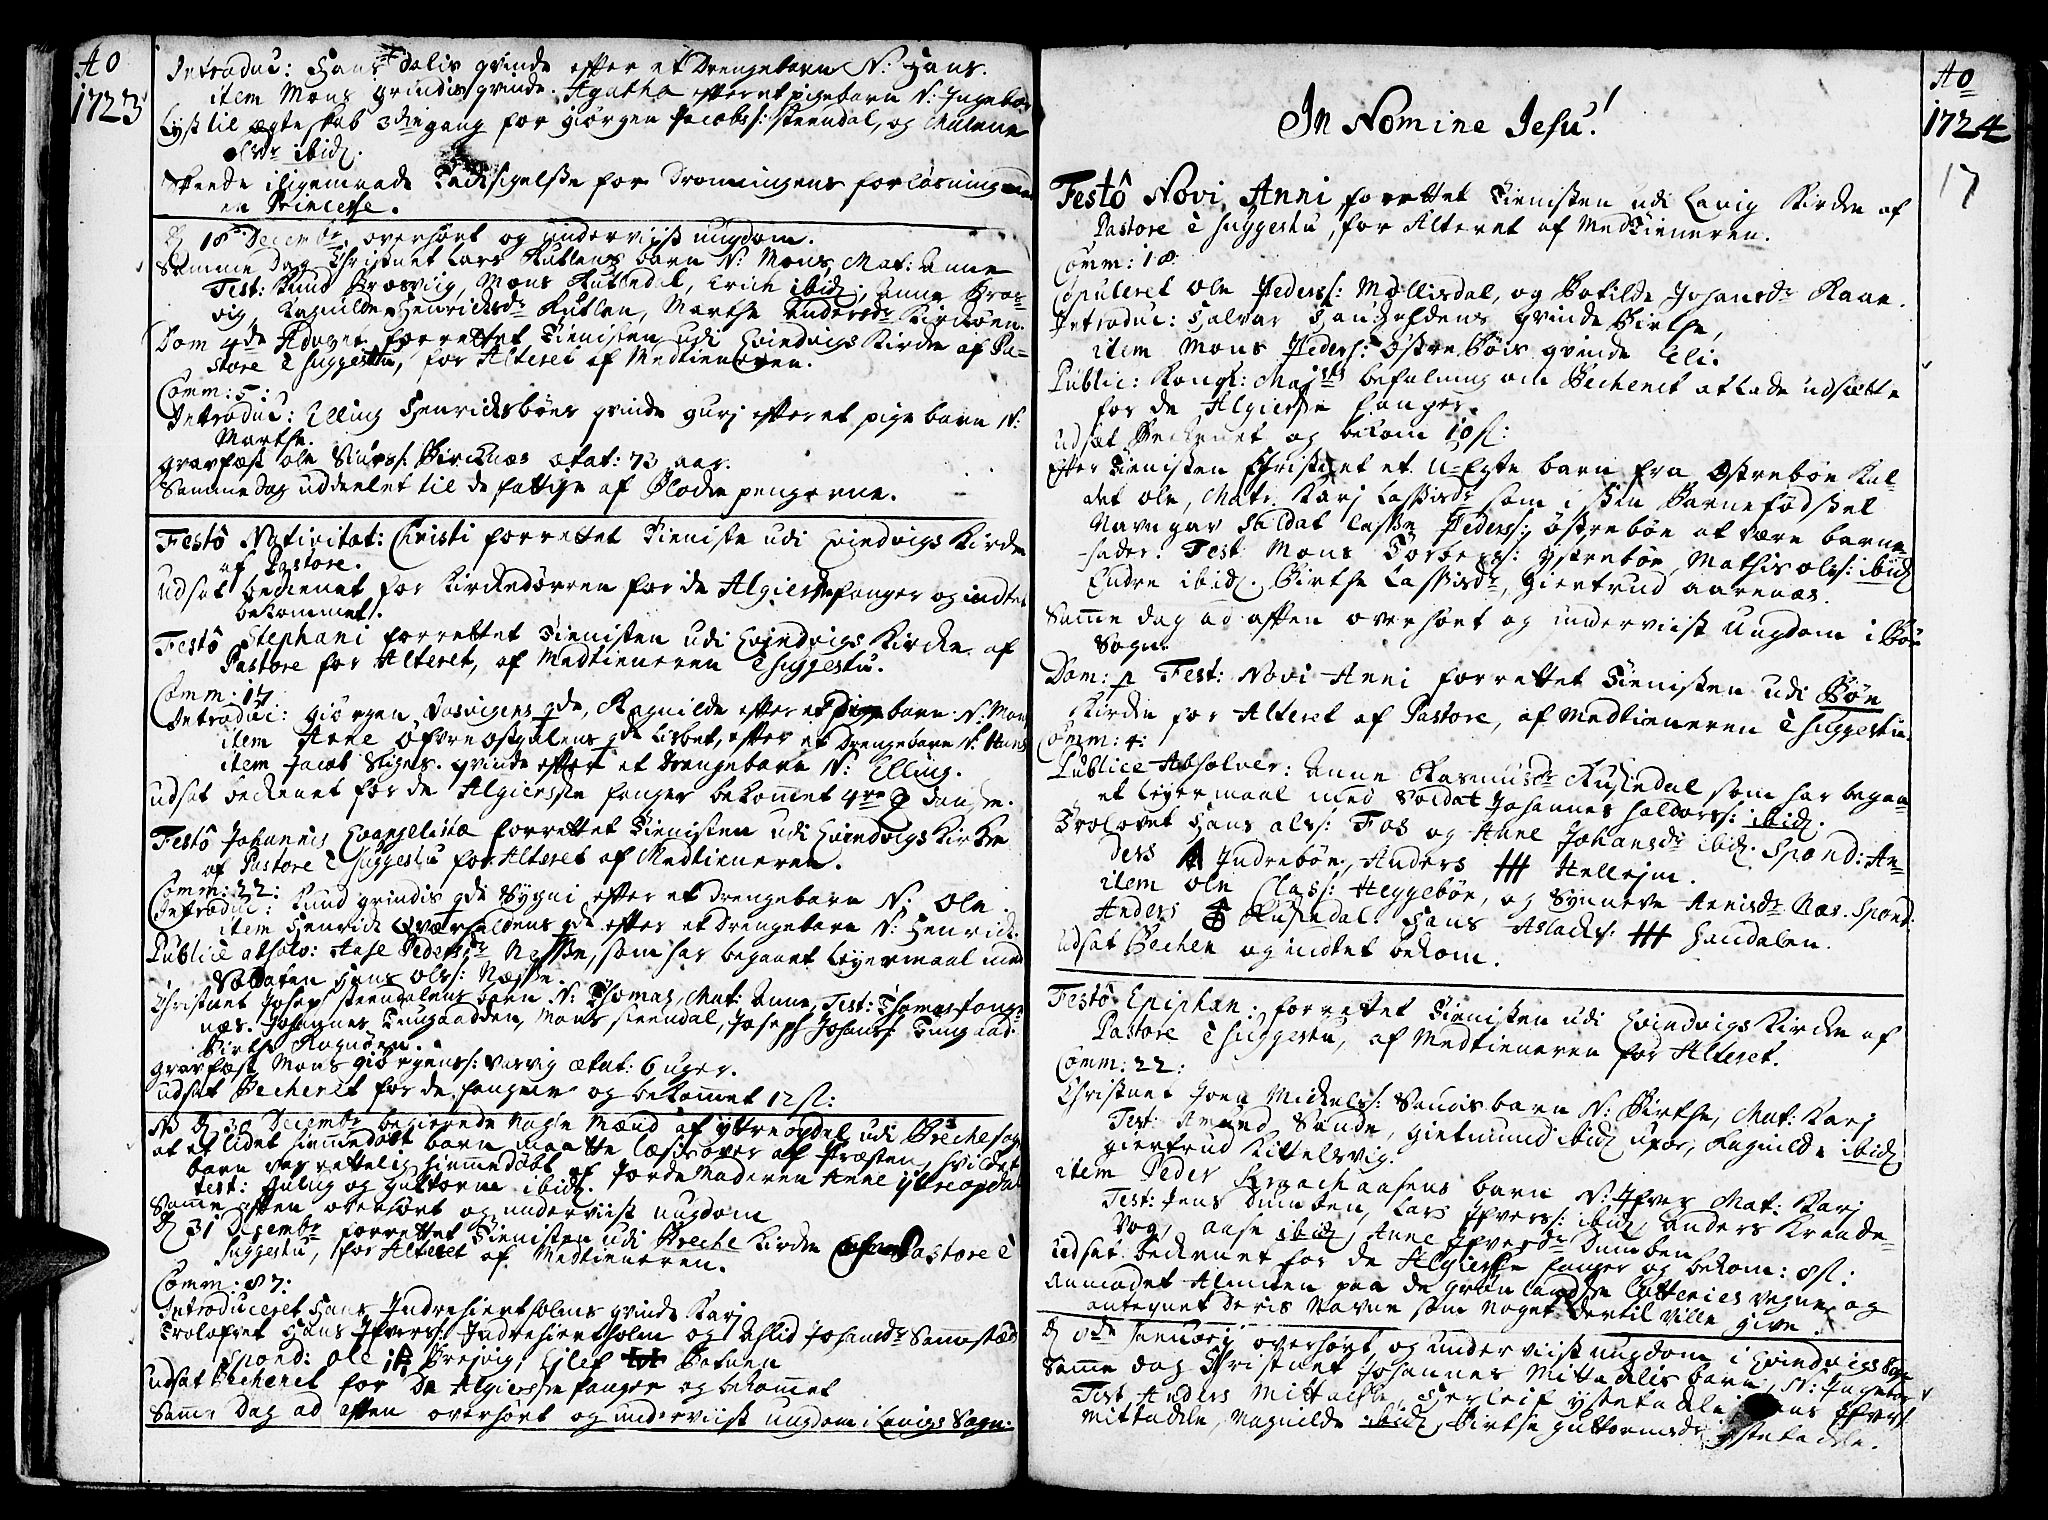 Ao
1723
Introduc: Hans Dalis qvinde effter et Drengebarn N: Hans.
item Mons grindis qvinde Agatha effter et pigebarn N: Ingebor
Lyst til ægteskab 3die gang for Giørgen Jacobs: Steendal, og Malene
Ols dr ibid.
Skeede iligemaade Tacksigelse for Dronningens forløsning med
en Princesse.
D 18 Decembr overhørt og underviist ungdom.
Samme Dag Christnet Lars Rutlens barn N: Mons, Mat: Anne
Test: Knud Brosviig, Mons Rutledal, Erich ibid; Anne Bros-
vig, Ragnilde Henrichsdr Rutlen, Marthe Andersdr
Dom 4de Advent forrettet Tienisten udi Evindvigs Kircke af Pa-
store è suggestu, for Alteret af Medtieneren.
Comm: 5:
Introduc: Elling Henricksbøens qvinde Guri effter et pige barn N:
Marthe.
Gravfæst Ole Siurs: Bircknæs ætat: 73 aar.
Samme dag uddeelet til de fattige af Blocke pengerne.
Festô Nativitat: Christi forrettet Tieniste udi Evindvigs Kircke
af Pastore.
Udsat beckenet for Kirckedørren for de Algierske fanger og indtet
bekommet.
Festô Stephani forrettet Tienisten udi Evindvigs Kircke af
Pastore for Alteret, af Medtieneren è suggestu.
Comm: 17
Introduc: Giørgen Vasvigens qde, Ragnilde effter et Pige barn N: Mari
item Arne Øfre Opdalens qde Lisbet, effter et Drengebarn N: Hans
item Jacob Stigers qvinde effter et Drengebarn N: Elling.
Udsat beckenet for de Algierske fanger bekommet 4re danske.
Festô Johannis Evangelistæ forrettet Tienisten udi Evindvigs Kircke
af Pastore è suggestu for Alteret af Medtieneren.
Comm: 22:
Introduc: Knud grindis qde Sygni effter et drengebarn N: Ole.
item Henrick Qværheldens qde effter et Drengebarn N: Henrick.
Publicè absolv: Aase Pedersdr Nesse, som har begaaet leyermaal med
Soldaten Hans Ols: Næsse.
Christnet Joseph Steendalens barn N: Thomas, Mat: Anne, Test: Thomas
næs. Johannes Tungaadden, Mons Steendal, Joseph Johans: Tungaad.
Birthe Rognøen.
Gravfæst Mons Giørgens: Vasvig ætat: 6 uger.
Udsat Becheret for de fangne og bekommet 12 sk:
NB D 30 Decembr begierede nogle Mænd af Yttre Opdal udi Breche sogn
at et lidet hiemmedøbt barn maatte læsis over af Præsten, hvilchet
barn var rettelig hiemmedøbt af Jordemoderen Anne Yttre Opdal
test: Hulug og Guttorm ibid.
Samme afften overhørt og underviist ungdom
D 31 Decembr forrettet Tienisten udi Breche Kircke af Pastore è
suggestu, for Alteret af Medtieneren.
Comm: 87:
Introduceret Hans Indrehiertholms qvinde Karj
Trolofvet Hans Ifvers: Indrehiertholm og Aslid Johansdr
Spond: Ole Brejvig, Ejlef
Udsat Becheret for De Algierske fanger og bekommet
Samme Dag ad aften overhørt og underviist ungdom i Lavigs Sogn.
Ao
1724
17
In Nomine Jesu!
Festô Novi Anni forrettet Tienisten udi Lavig Kircke af
Pastore è suggestu, for Alteret af Medtieneren.
Comm: 18
Copuleret Ole Peders: Mollisdal, og Botilde Johansdr Raae.
Introduc: Halvar Hanheldens qvinde Birthe,
item Mons Peders: Østrebøis qvinde Eli.
Public: Kongl: Majsts befalning om Bechenet at lade udsætte
for de Algierske fanger.
Udsat Beckenet og bekom 10 sk:
Effter Tienisten Christnet et U-Egte barn fra Østrebøe kal-
det Ole, Mater Karj Lassisdr som i sin Barnefødsel
Navngav Soldat Lasse Peders: Østrebøe at være barne-
fader. Test Mons Torbers: Ystrebøe, Mathis Ols: ibid
Endre ibid. Birthe Lassisdr, Giertrud Aarenæs.
Samme dag ad afften overhørt og underviist Ungdom i Bøe
Sogn.
Dom: p Fest: Novi Anni forrettet Tienisten udi Bøe
Kircke for Alteret af Pastore, af Medtieneren è suggestu.
Comm: 4:
Publicè Absolver: Anne Rasmusdr som har begaa-
et leyermaal med Soldat Johannes Haldors: ibid.
Trolovet Hans Ols: Fos og Anne Johansdr ibid. Spond: An-
ders Indrebøe, Anders Hellejm.
item Ole Class: Heggebøe, og Synneve Arnisdr Næs. Spond:
Anders Hans Aslacks:
Udsat Bechen og indtet bekom.
Festô Epiphan: forrettet Tienisten udi Evindvigs Kircke af
Pastore è suggestu, af Medtieneren for Alteret.
Comm: 22:
Christnet Joen Mickels: Sandis barn N: Birthe, Mat: Karj
Test: Amund Sande, Giermund ibid Ragnilde ibid
Giertrud Kittelsvig.
item Peder barn N: Ifver Mat: Karj
Test: Jens Dumben, Lars Ifvers: ibid, Anders
Aase ibid, Anne Ifversdr Dumben
Udsat beckenet for de Algierske fanger og bekom: 8 sk:
Anmodet Almuen paa de Grønlandske Lotteries vegne, og
antegnet deris Navne som noget dertil ville give.
D 8de Januarij overhørt og underviist ungdom i Evindvigs Sogn
Samme dag Christnet Johannes Mittadelis barn, N: Ingebor
Test Anders Mittadele, Herleif Ystetadele, Hans Ifvers:
Mittadele, Magnilde ibid, Birthe Guttormsdr Ystetadele.